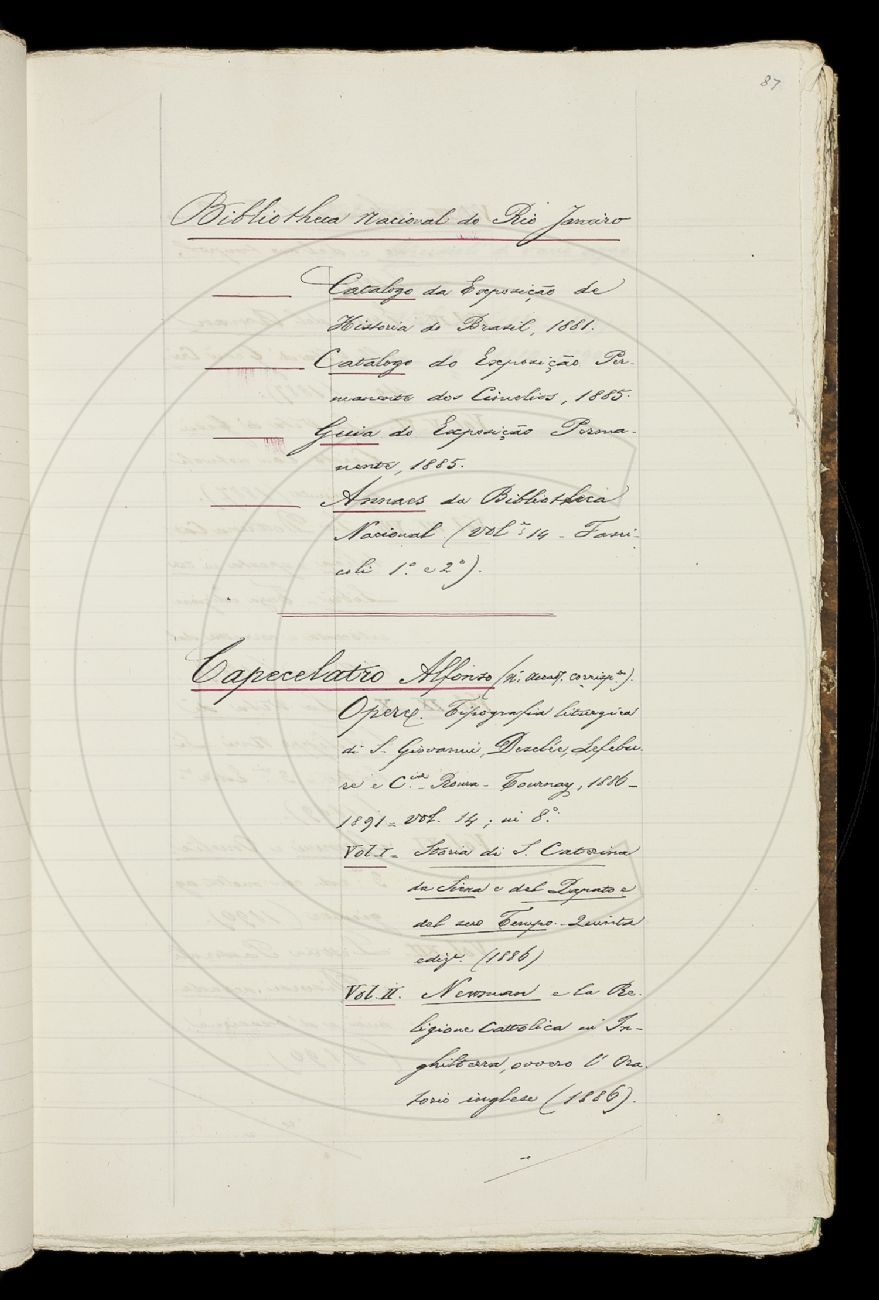 87
Bibliotheca Nacional do Rio Janeiro
Catalogo da Exposição de
Historia do Brasil, 1881.
Catalogo da Exposição Per-
manente dos Cimelios, 1885.
Guia da Exposição Perma-
nente, 1885.
Annaes da Bibliotheca
Nacional (vol. 14 - Fasci-
coli 1º e 2º).
Capecelatro Alfonso
Opere. Tipografia liturgica
di S. Giovanni, Desclée, Lefebu-
re e C.ie - Roma - Tournay, 1886-
1891 - vol. 14; in 8º.
Vol. I - Storia di S. Caterina
da Siena e del Papato e
del suo Tempo - Quinta
ediz. (1886)
Vol. II. Newman e la Re-
ligione Cattolica in In-
ghilterra, ovvero l'Ora-
torio inglese (1886).